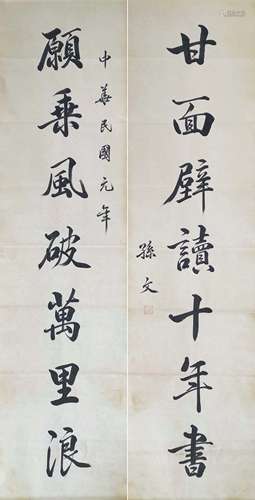 甘面壁讀十年書
孫文
中華民國元年
願乘風破萬里浪